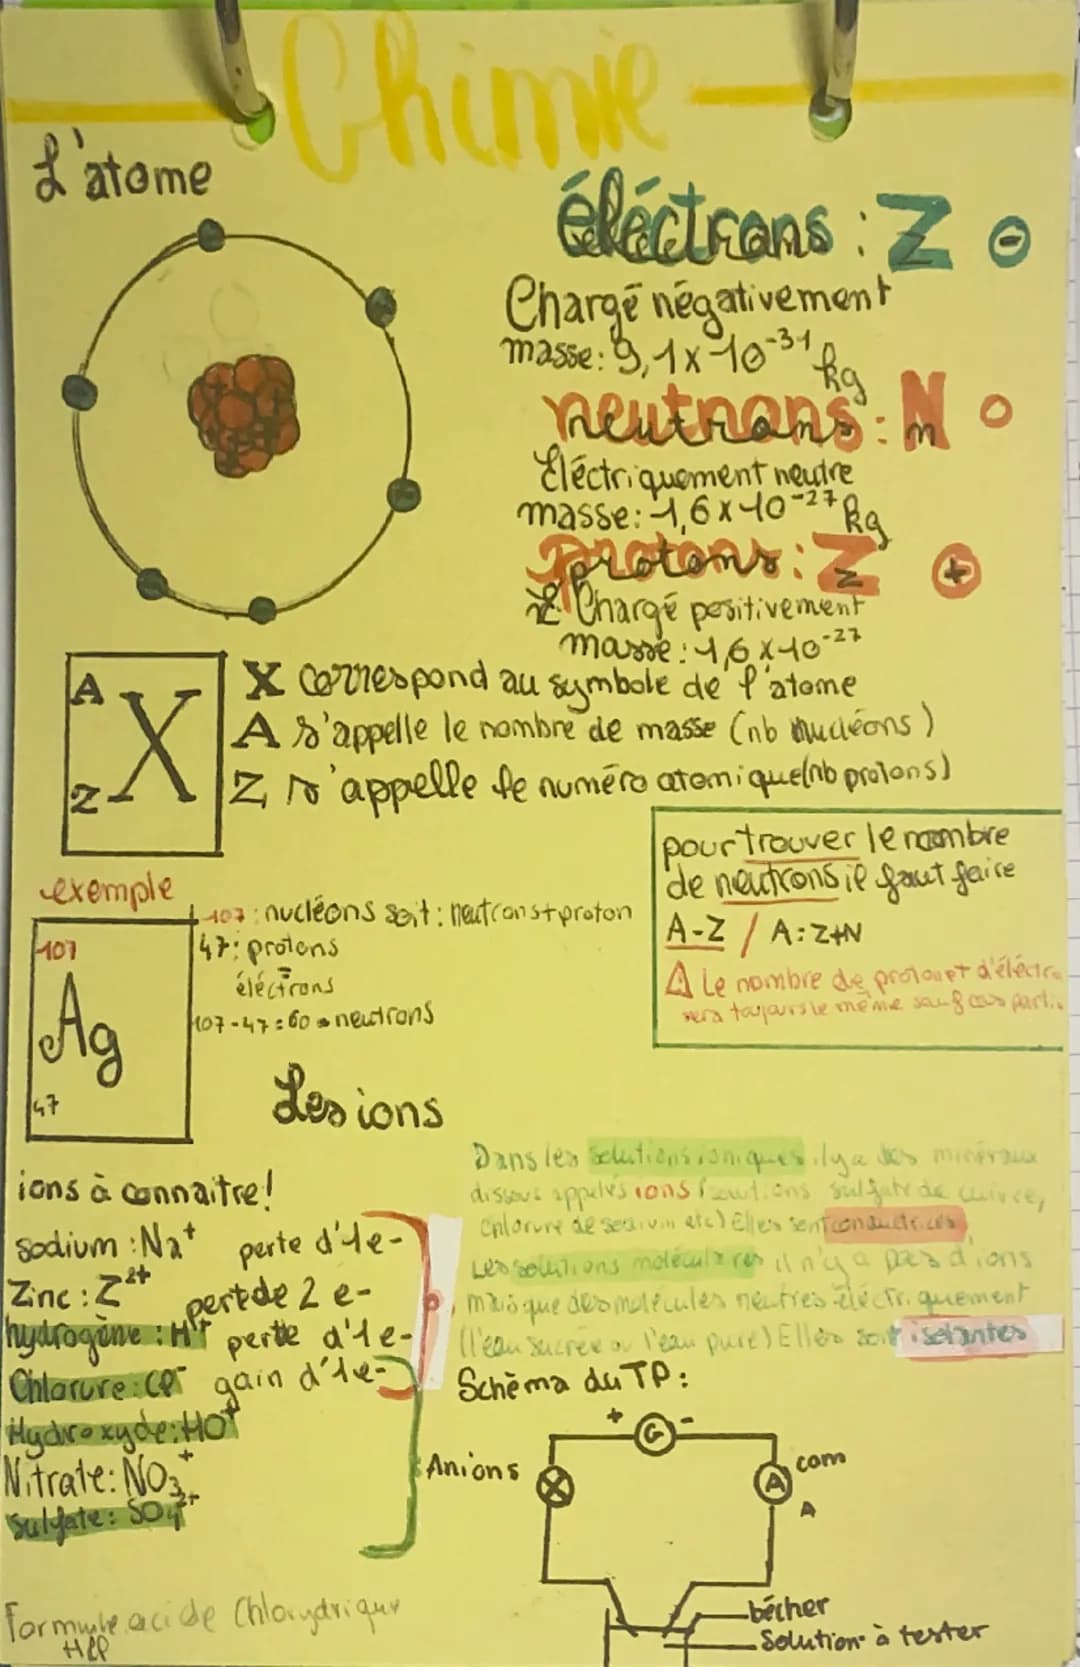 Chimie
L'atome
éléctrons : Z -
Chargé négativement
masse: 9,1x10-31 kg
neutrons : N
n
Éléctriquement neutre
masse: 1,6x10-27 kg
protons : Z +
Chargé positivement
masse : 1,6x10-27
A
X
Z
X correspond au symbole de l'atome
A s'appelle le nombre de masse (nb nucléons)
Z s'appelle le numéro atomique(nb protons)
pour trouver le nombre
de neutrons il faut faire
A-Z / A: Z+N
⚠ Le nombre de proton et d'éléctr
sera toujours le même sauf cas parti
exemple
107
Ag
47
107 : nucléons soit : neutrons+proton
47: protons
=
éléctrons
107-47 = 60 neutrons
Les ions
ions à connaitre!
sodium : Na+ perte d'1e-
Zinc : Z2+ perte de 2 e-
hydrogène : H+ perte d'1e-
Chlorure : Cl- gain d'1e-
Hydroxyde: HO+
Nitrate: NO3+
Sulfate: SO42+
Anions
Dans les solutions ioniques il y a des minéraux
dissous appelés ions (solutions sulfate de cuivre,
Chlorure de sodium etc) Elles sont conductrices
Les solutions moléculaires il n'y a pas d'ions
mais que des molécules neutres éléctriquement
(l'eau sucrée ou l'eau pure) Elles sont isolantes
Schèma du TP :
+ G -
A
com
A
bécher
Solution à tester
Formule acide Chlorydrique
HCl